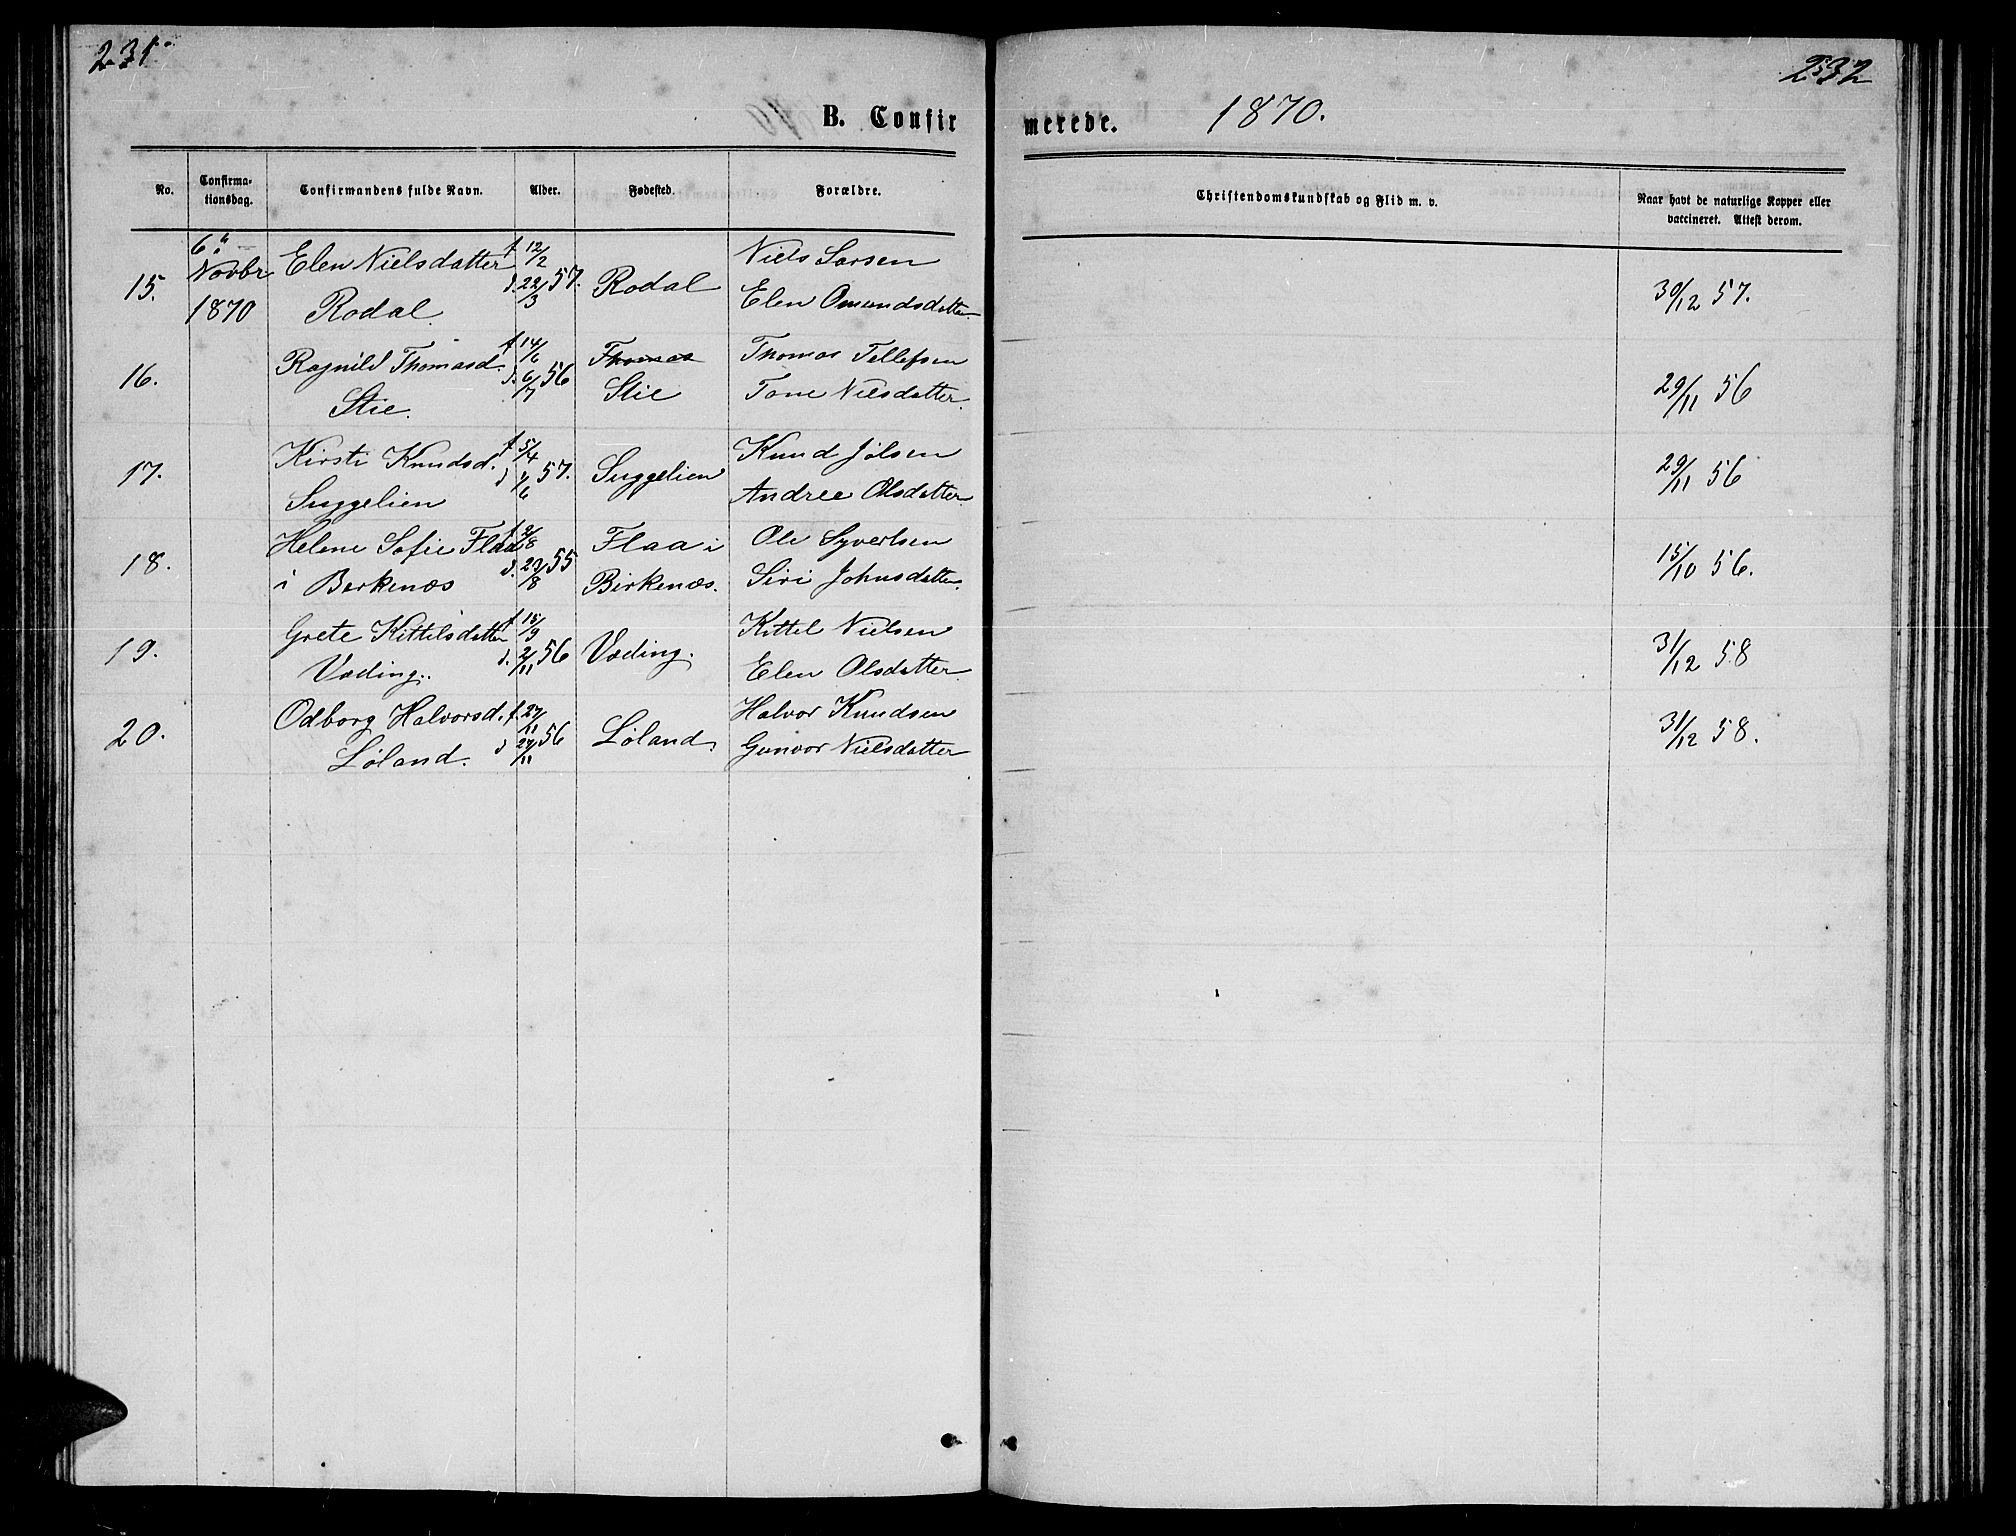 231
232
B. Confirmerede. 1870.
No. | Confirmationsdag. | Confirmandens fulde Navn. | Alder. | Fødested. | Forældre. | Christendomskundskab og Flid m. v. | Naar havt de naturlige Kopper eller vaccineret. Attest derom.
15. | 6te Novbr 1870 | Elen Nielsdatter Rodal. | f. 12/2 d. 22/3 57. | Rodal | Niels Larsen Elen Omundsdatter | | 30/12 57.
16. | | Ragnild Thomasd. Stie. | f. 14/6 d. 6/7 56 | Thomas Stie | Thomas Tellefsen Tone Nilsdatter. | | 29/11 56
17. | | Kirsti Knudsd. Suggelien | f. 5/4 d. /6 57. | Suggelien | Knud Jølsen Andree Olsdatter | | 29/11 56
18. | | Helene Sofie Flaa i Berkenæs | f. 9/8 d. 29/8 55 | Flaa i Birkenæs. | Ole Syvertsen Siri Johnsdatter. | | 15/10 56.
19. | | Grete Kittilsdatter Væding. | f. 15/9 d. 2/11 56 | Væding. | Kittel Nielsen Elen Olsdatter | | 31/12 58
20. | | Odborg Halvorsd. Løland. | f. 27/11 d. 27/11 56 | Løland. | Halvor Knudsen Gunvor Nielsdatter | | 31/12 58.